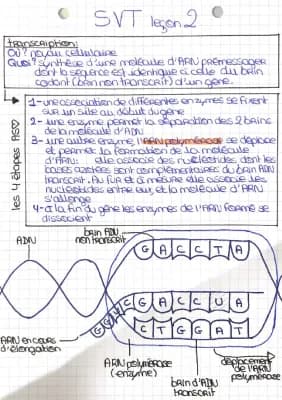 SVT leçon 2
transcription:
Où? noyau cellulaire
Quoi? synthèse d'une molécule d'ARN prémessager
dont la séquence est identique à celle du brin
codant (brin non transcrit) d'un gène.
les 4 étapes
1- une association de différentes enzymes se fixent
sur un site au début du gène
2- une enzyme permet la séparation des 2 brins
de la molécule d'ADN
3- une autre enzyme, l'ARN polymérase se déplace
et permet la formation de la molécule
d'ARN: elle associe des nucléotides dont les
bases azotées sont complémentaires du brin ADN
transcrit. Au fur et à mesure elle associe les
nucléotides entre eux, et la molécule d'ARN
s'allonge
4- à la fin du gène les enzymes de l'ARN formé se
dissocient
brin ADN
non transcrit
ADN
G A C C T A
G G A C C U A
C T G G A T
ARN en cours
d'élongation
ARN polymérase
(enzyme)
brin d'ADN
transcrit
déplacement
de l'ARN
polymérase